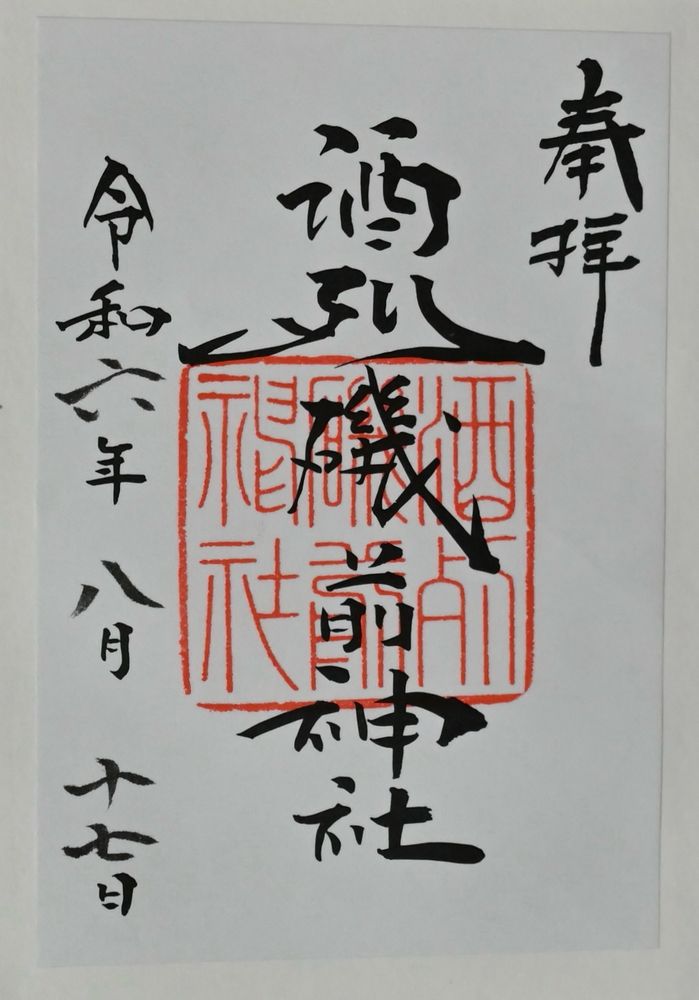 奉拝
酒列磯前神社
酒列
磯前
神社
令和六年 八月 十七日